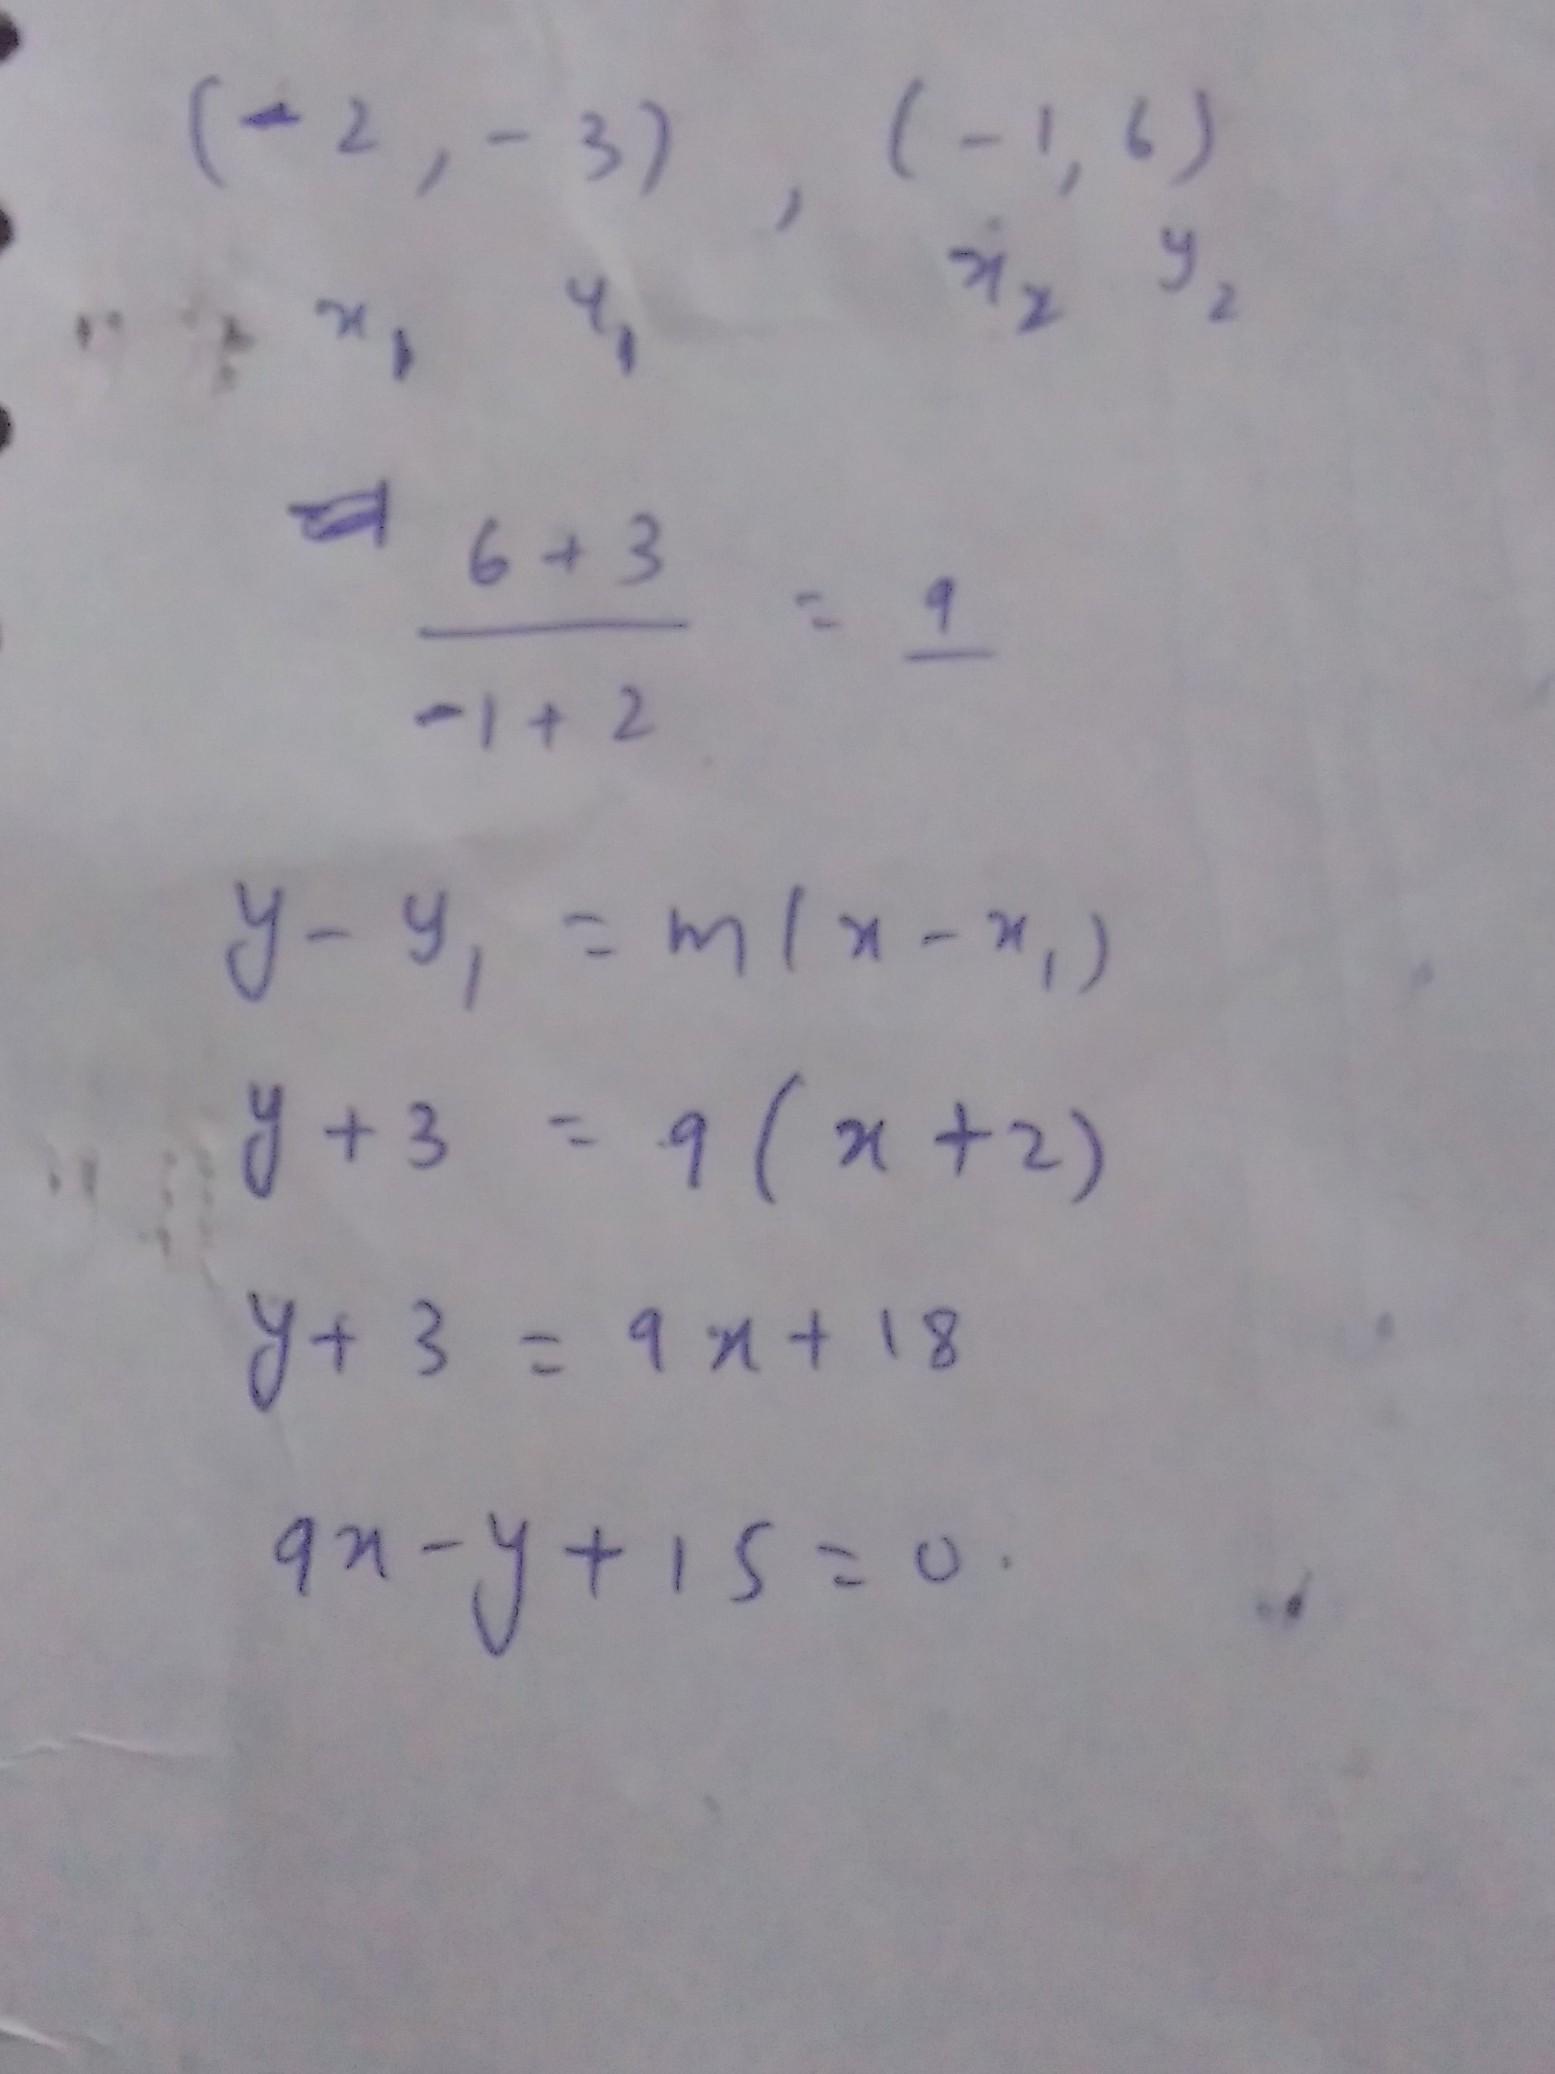 (-2, -3) , (-1, 6)
x₁ y₁ x₂ y₂
6 + 3
-1 + 2
= 9
y - y₁ = m(x - x₁)
y + 3 = 9(x + 2)
y + 3 = 9x + 18
9x - y + 15 = 0.